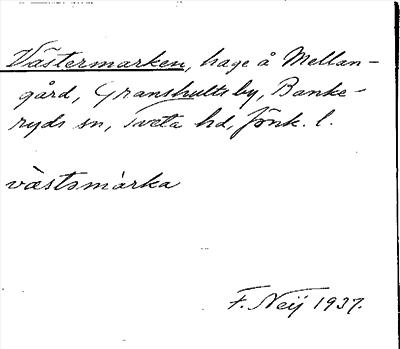 Västermarken, hage å Mellan-
gård, Granshults by, Banke-
ryds sn, Tveta hd, Jönk. l.
västsmàrka
F. Neij 1937.